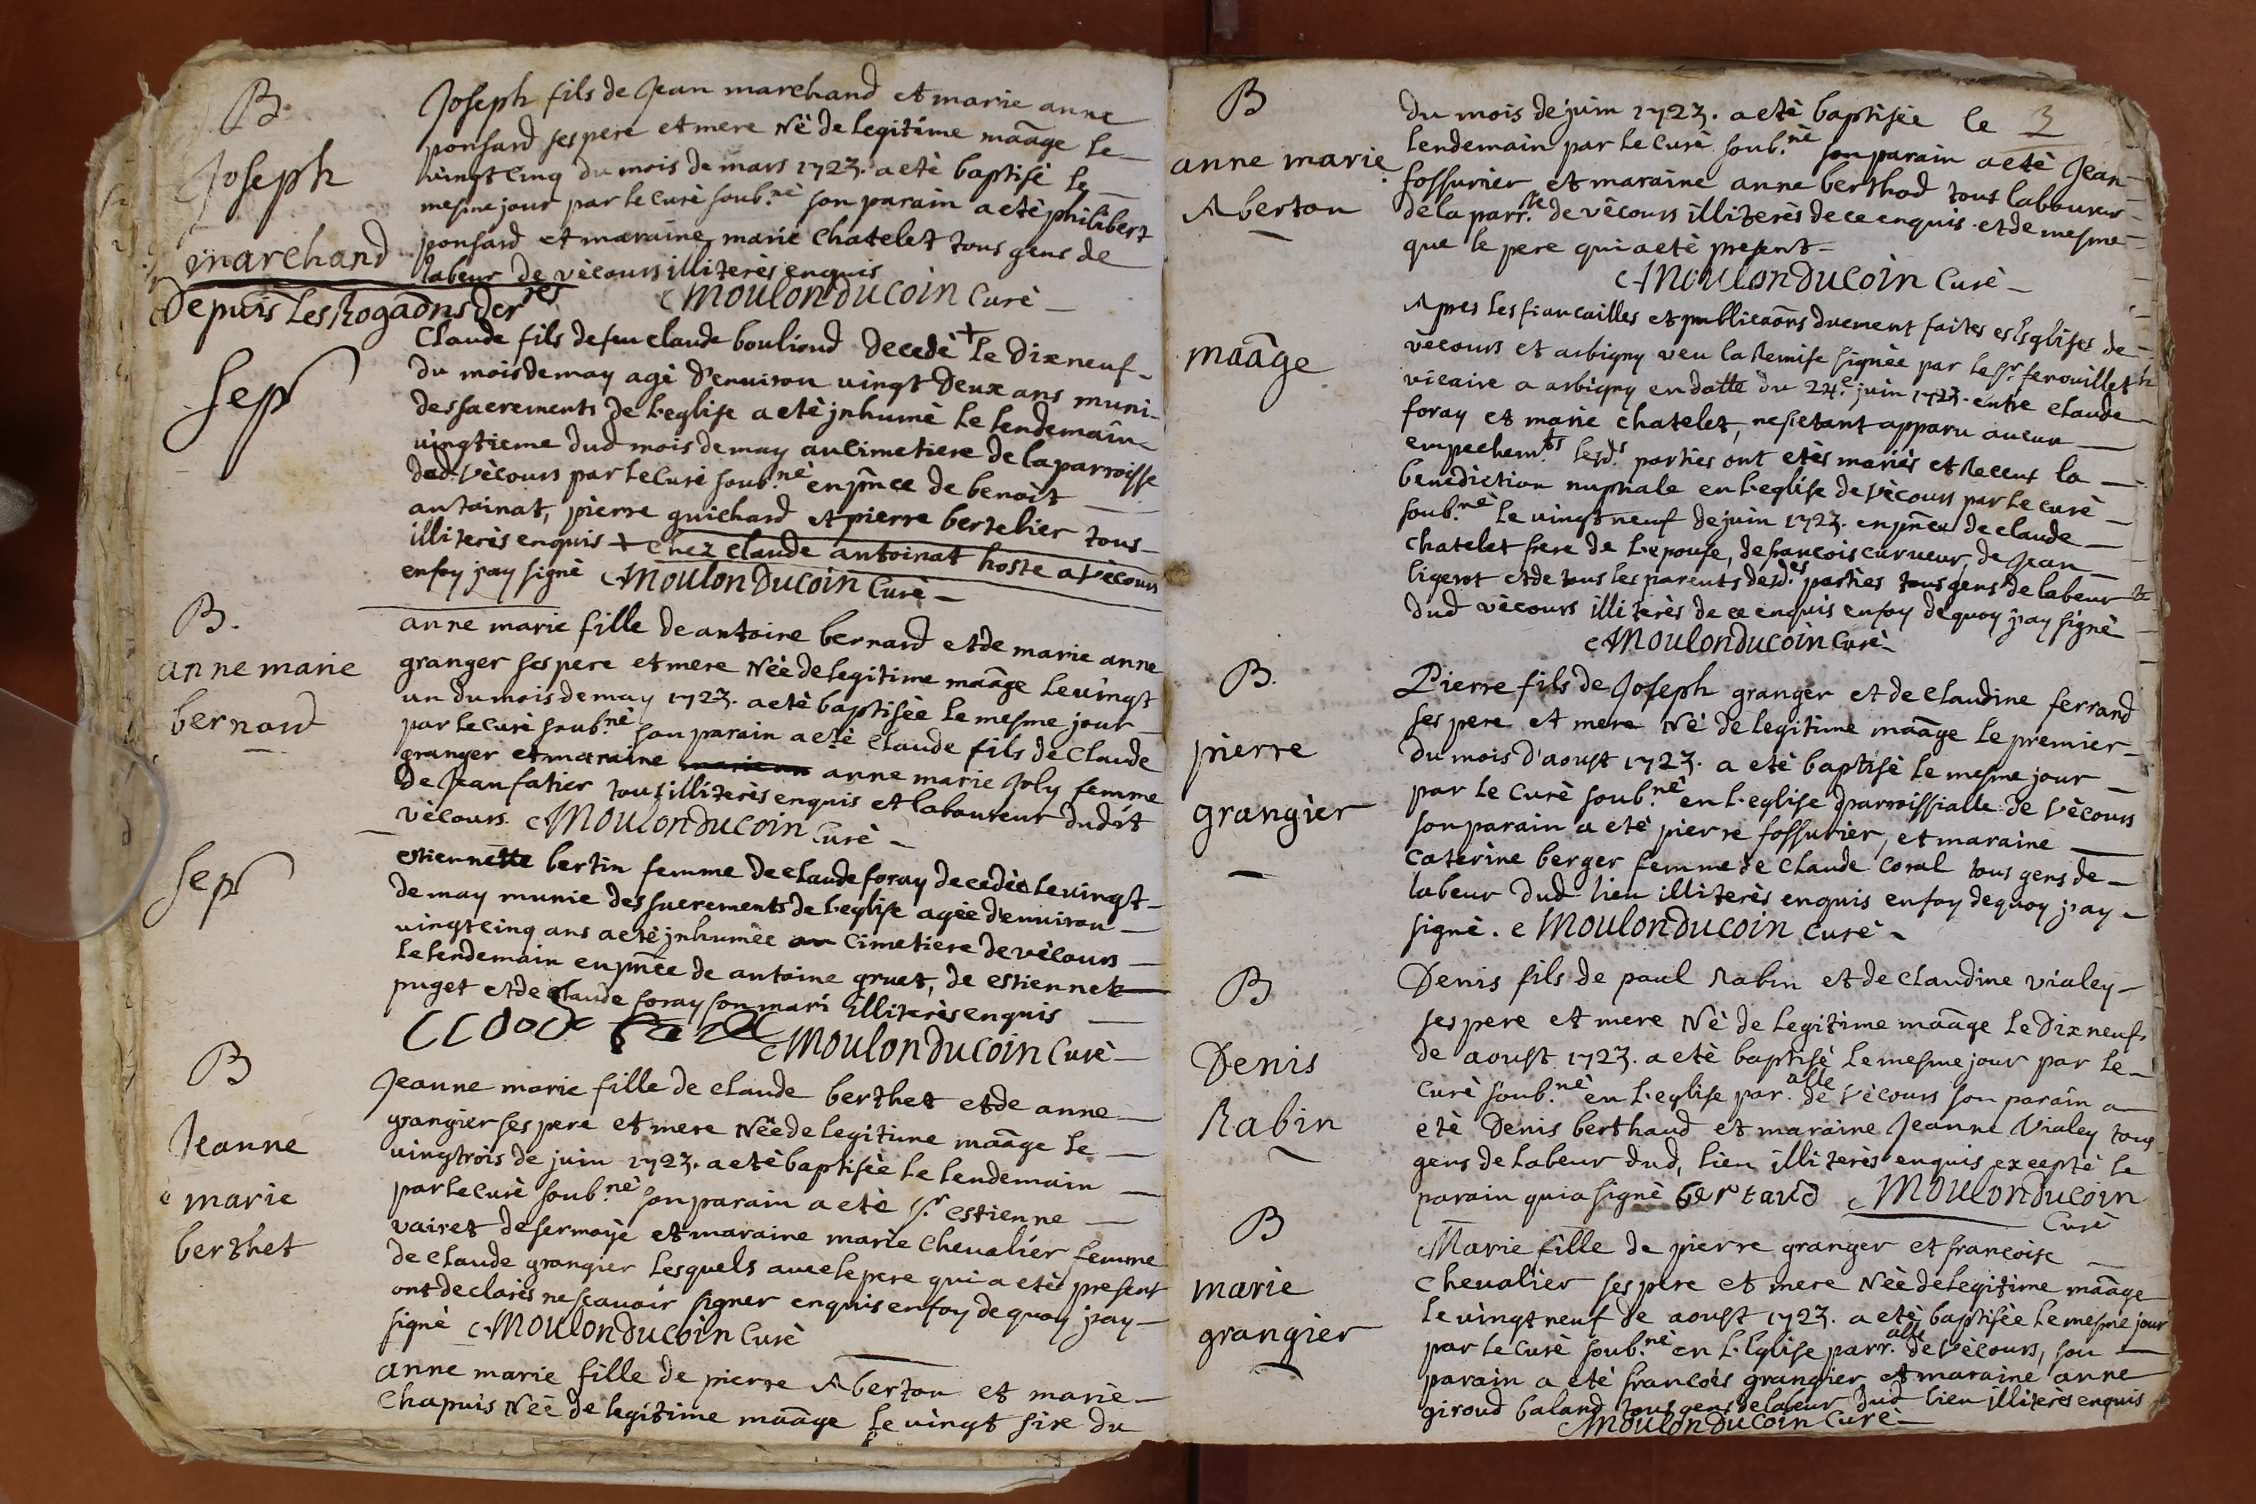 B.
Joseph
marchand
Joseph fils de Jean marchand et marie anne
ponsard ses pere et mere Né de legitime maãge le
vingt cinq du mois de mars 1723. a eté baptisé le
mesme jour par le curé soub.né son parain a eté philibert
ponsard et maraine marie chatelet tous gens de
labeur de vécours illiterés enquis
Moulonducoin Curé
Depuis Les Rogaõns der.res
sep
Claude fils defeu claude bouliond decedé + le dixneuf
du mois de may agé d'environ vingt deux ans muni
des sacrements de l'eglise a eté jnhumé le lendemain
vingtieme dud mois de may au cimetiere de la parroisse
dud. vécours par le curé soub.né en pñce de benoit
antoinat, pierre guichard et pierre bertelier tous
illiterés enquis + chez claude antoinat hoste a vécours
enfoy jay signé Moulonducoin Curé
B.
anne marie
bernard
anne marie fille de antoine bernard et de marie anne
granger ses pere et mere Néé de legitime maãge le vingt
un du mois de may 1723. a eté baptisée le mesme jour
par le curé soub.né son parain a eté claude fils de claude
granger et maraine anne marie joly femme
de Jean fatier tous illiterés enquis et laboureur dudit
vécours. Moulonducoin Curé
sep
estiennette bertin femme de claude foray decedée le vingt
de may munie des sacrements de l'eglise agée d'environ
vingt cinq ans a eté jnhumée au cimetiere de vécours
le lendemain en pñce de antoine gruet, de estienne
puget et de claude foray son mari illiterés enquis
Moulonducoin Curé
B
Jeanne
marie
berthet
Jeanne marie fille de claude berthet et de anne
grangier ses pere et mere Néé de legitime maãge le
vingtrois de juin 1723. a eté baptisée le lendemain
par le curé soub.né son parain a eté sr. estienne
vairet de sermoyé et maraine marie chevalier femme
de claude grangier lesquels avec le pere qui a eté present
ont declarés ne scavoir signer enquis enfoy de quoy jay
signé Moulonducoin Curé
anne marie fille de pierre Aberton et marie
chapuis Néé de legitime maãge le vingt sixe du
3
B
anne marie
Aberton
du mois de juin 1723. a eté baptisée le
lendemain par le curé soub.né son parain a eté Jean
fossurier et maraine anne berthod tous laboureur
de la parr.se de vécours illiterés de ce enquis et de mesme
que le pere qui a eté present
Moulonducoin Curé
maãge
Apres les fiancailles et publicaõns duement faites es Eglises de
vécours et arbigny veu la Remise signée par le sr. ferouillet
vicaire a arbigny en datte du 24e. juin 1723. entre claude
foray et marie chatelet, ne s'etant apparu aucun
empechem.ts lesd.s parties ont etés mariés et Receus la
benediction nuptiale en l'eglise de vécours par le curé
soub.né le vingt neuf de juin 1723. en pñce de claude
chatelet frere de l'epouse, de francois curveur, de Jean
ligerot et de tous les parents desd.es parties tous gens de labeur
dud vécours illiterés de ce enquis enfoy de quoy jay signé
Moulonducoin Curé
B.
pierre
grangier
Pierre fils de Joseph granger et de claudine ferrand
ses pere et mere Né de legitime maãge le premier
du mois d'aoust 1723. a eté baptisé le mesme jour
par le curé soub.né en l'eglise parroissialle de vécours
son parain a eté pierre fossurier, et maraine
caterine berger femme de claude coral tous gens de
labeur dud lieu illiterés enquis enfoy de quoy jay
signé. Moulonducoin Curé
B
Denis
Rabin
Denis fils de paul Rabin et de claudine vialey
ses pere et mere Né de legitime maãge le dixneuf
de aoust 1723. a eté baptisé le mesme jour par le
curé soub.né en l'eglise par.alle de vécours son parain a
eté Denis berthaud et maraine Jeanne vialey tous
gens de labeur dud, lieu illiterés enquis excepté le
parain qui a signé bertaud Moulonducoin
Curé
B
marie
grangier
Marie fille de pierre granger et francoise
chevalier ses pere et mere Néé de legitime maãge
le vingt neuf de aoust 1723. a eté baptisée le mesme jour
par le curé soub.né en l'Eglise parr.alle de vécours, son
parain a eté francois grangier et maraine anne
giroud baland tous gens de labeur dud lieu illiterés enquis
Moulonducoin Curé